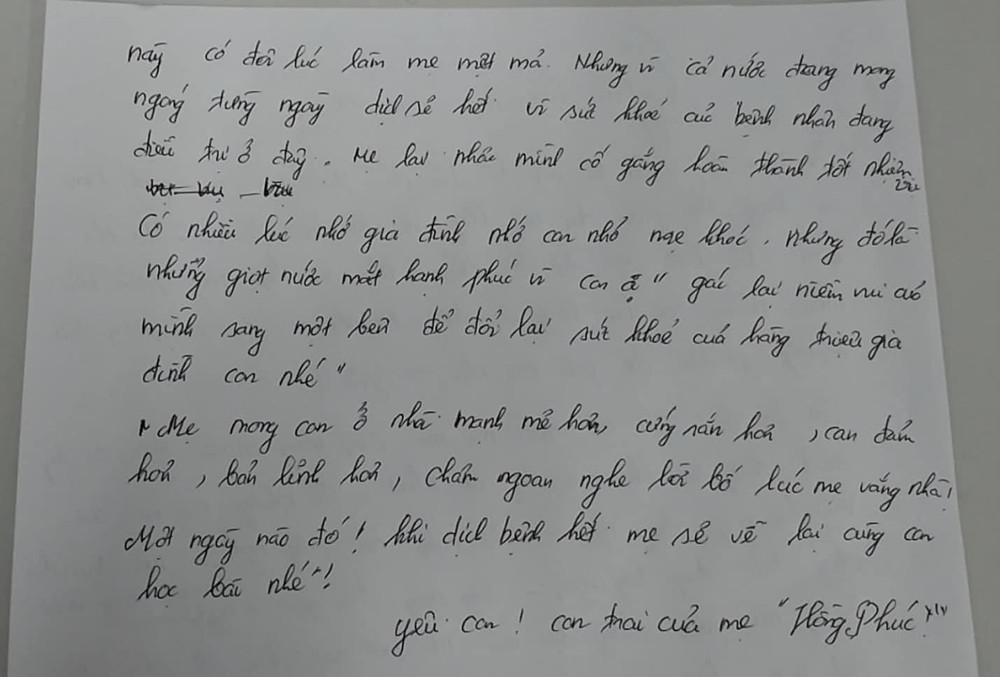 này có đôi lúc làm mẹ mệt mả. Nhưng vì cả nước đang mong
ngóng từng ngày dịch sẽ hết vì sức khoẻ của bệnh nhân đang
điều trị ở đây. Mẹ lại nhắc mình cố gắng hoàn thành tốt nhiệm
vụ
Có nhiều lúc nhớ gia đình nhớ con nhỏ mẹ khóc, nhưng đó là
những giọt nước mắt hạnh phúc vì con ạ " gác lại niềm vui của
mình sang một bên để đổi lại sức khoẻ của hàng triệu gia
đình con nhé"
Mẹ mong con ở nhà mạnh mẽ hơn, cứng rắn hơn, can đảm
hơn, bản lĩnh hơn, chăm ngoan nghe lời bố lúc mẹ vắng nhà!
Một ngày nào đó! khi dịch bệnh hết mẹ sẽ về lại cùng con
học bài nhé"!
yêu con! con trai của mẹ "Hồng Phúc"